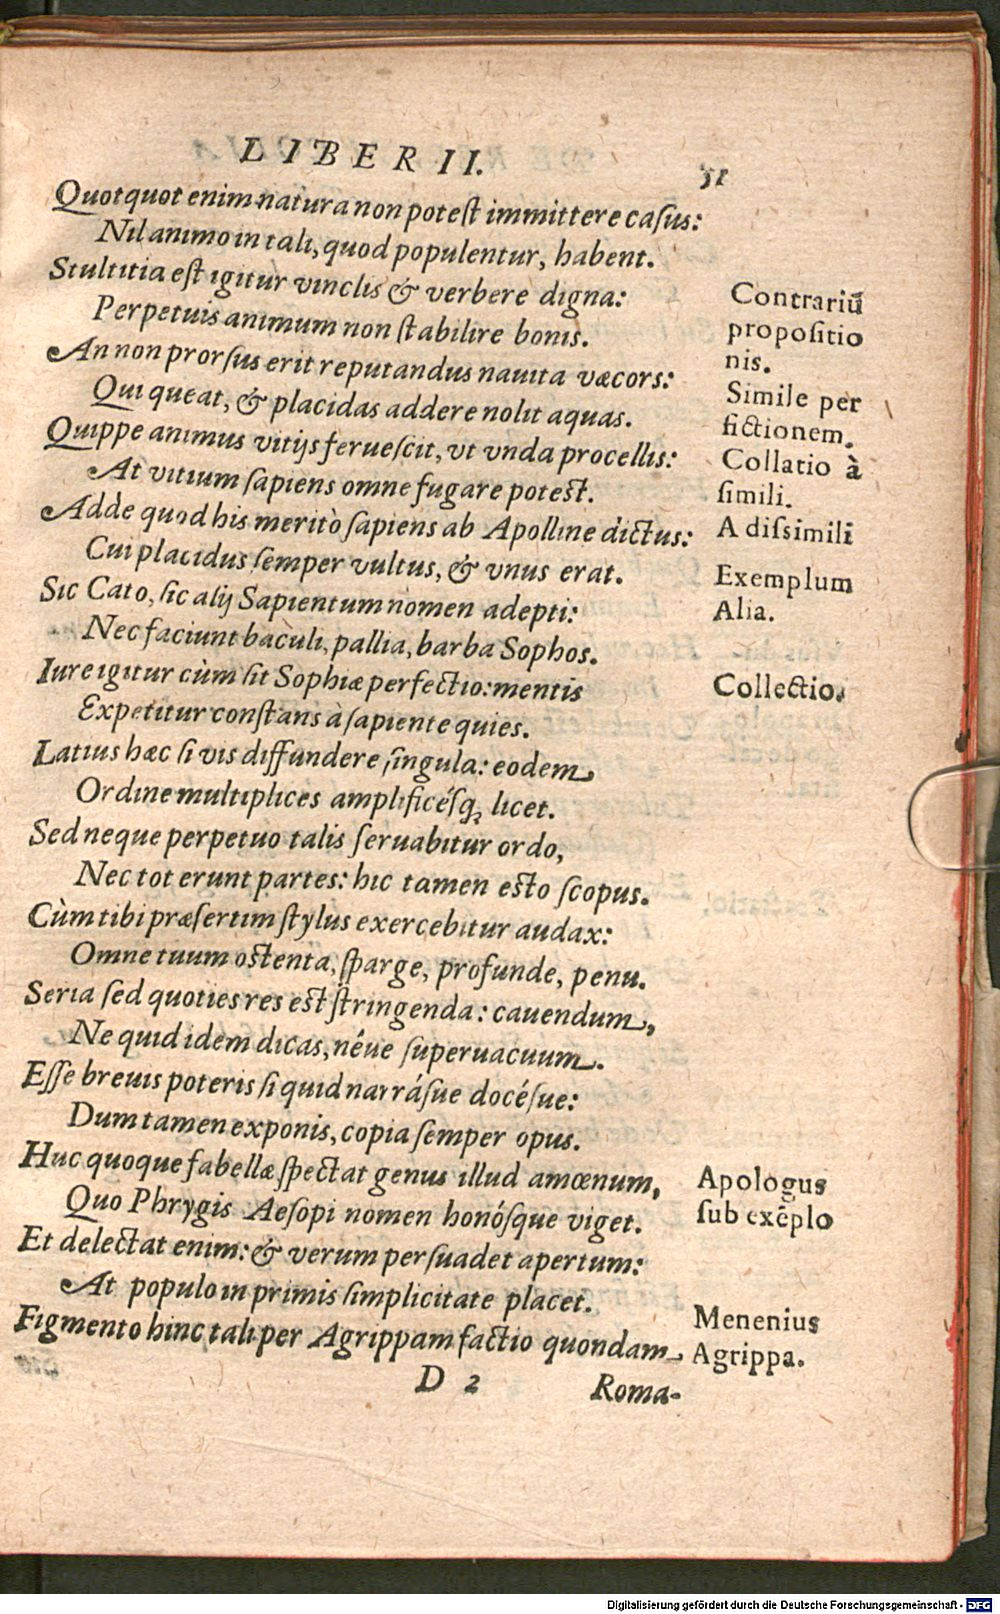 LIBER II.
51
Quotquot enim natura non potest immittere casus:
Nil animo in tali, quod populentur, habent.
Stultitia est igitur vinclis & verbere digna:
Contrariū
Perpetuis animum non stabilire bonis.
propositio
nis.
An non prorsus erit reputandus nauita væcors:
Simile per
Qui queat, & placidas addere nolit aquas.
fictionem.
Quippe animus vitijs feruescit, vt vnda procellis:
Collatio à
At vitium sapiens omne fugare potest.
simili.
Adde quod his meritò sapiens ab Apolline dictus:
A dissimili
Cui placidus semper vultus, & vnus erat.
Exemplum
Sic Cato, sic alij Sapientum nomen adepti:
Alia.
Nec faciunt baculi, pallia, barba Sophos.
Iure igitur cùm sit Sophiæ perfectio: mentis
Collectio.
Expetitur constans à sapiente quies.
Latius hæc si vis diffundere singula: eodem
Ordine multiplices amplificésq; licet.
Sed neque perpetuo talis seruabitur ordo,
Nec tot erunt partes: hic tamen esto scopus.
Cùm tibi præsertim stylus exercebitur audax:
Omne tuum ostenta, sparge, profunde, penu.
Seria sed quoties res est stringenda: cauendum,
Ne quid idem dicas, néue superuacuum.
Esse breuis poteris si quid narrásue docésue:
Dum tamen exponis, copia semper opus.
Huc quoque fabellæ spectat genus illud amœnum,
Apologus
Quo Phrygis Aesopi nomen honósque viget.
sub exēplo
Et delectat enim: & verum persuadet apertum:
At populo in primis simplicitate placet.
Menenius
Figmento hinc tali per Agrippam factio quondam
Agrippa.
D 2
Roma-
Digitalisierung gefördert durch die Deutsche Forschungsgemeinschaft - DFG